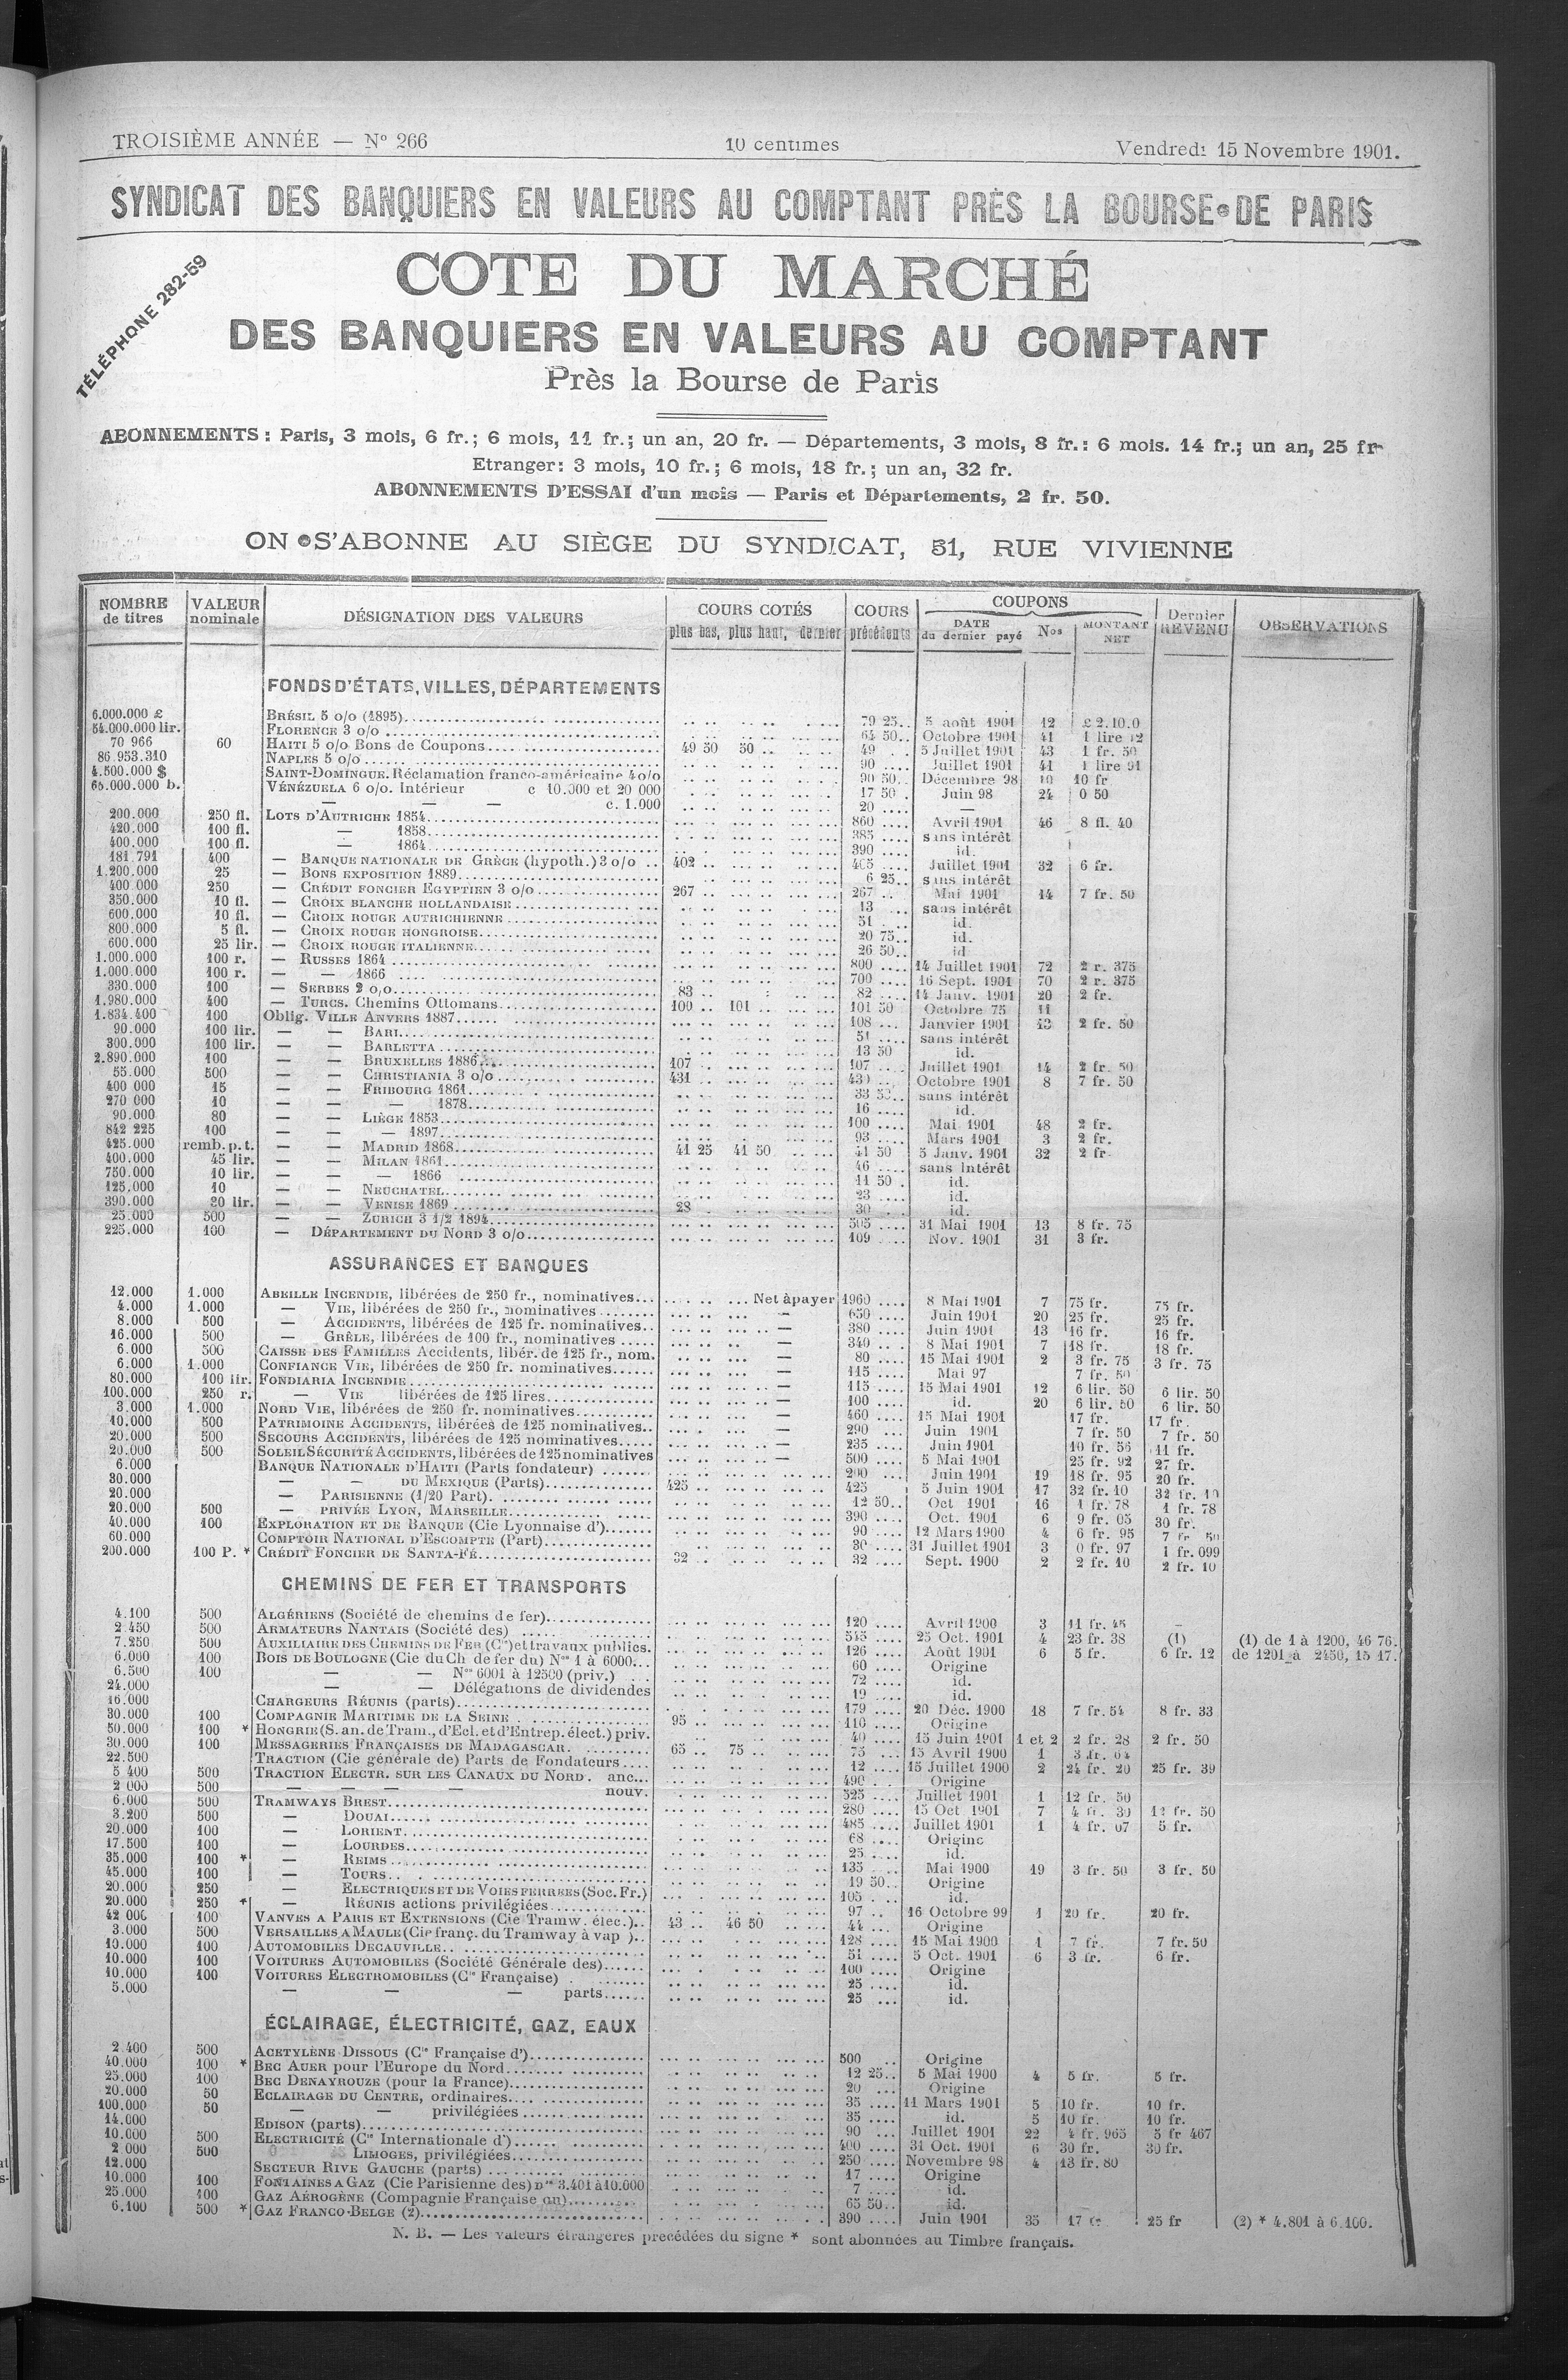 TROISIÈME ANNÉE — N° 266 10 centimes Vendredi 15 Novembre 1901.
SYNDICAT DES BANQUIERS EN VALEURS AU COMPTANT PRÈS LA BOURSE DE PARIS
TÉLÉPHONE 282-59
COTE DU MARCHÉ
DES BANQUIERS EN VALEURS AU COMPTANT
Près la Bourse de Paris
ABONNEMENTS : Paris, 3 mois, 6 fr.; 6 mois, 11 fr.; un an, 20 fr. — Départements, 3 mois, 8 fr.: 6 mois. 14 fr.; un an, 25 fr
Etranger: 3 mois, 10 fr.; 6 mois, 18 fr.; un an, 32 fr.
ABONNEMENTS D'ESSAI d'un mois — Paris et Départements, 2 fr. 50.
ON S'ABONNE AU SIÈGE DU SYNDICAT, 31, RUE VIVIENNE
NOMBRE de titres VALEUR nominale DÉSIGNATION DES VALEURS COURS COTÉS plus bas, plus haut, dernier COURS précédents COUPONS DATE du dernier payé Nos MONTANT NET Dernier REVENU OBSERVATIONS
FONDS D'ÉTATS, VILLES, DÉPARTEMENTS
6.000.000 £ BRÉSIL 5 o/o (1895) 79 25 5 août 1901 12 £ 2.10.0
54.000.000 lir. FLORENCE 3 o/o 64 50 Octobre 1901 41 1 lire 12
70 966 60 HAITI 5 o/o Bons de Coupons 49 50 50 49 5 Juillet 1901 43 1 fr. 50
86.953.310 NAPLES 5 o/o 90 Juillet 1901 41 1 lire 91
4.500.000 $ SAINT-DOMINGUE. Réclamation franco-américaine 4 o/o 90 50 Décembre 98 10 10 fr
65.000.000 b. VÉNÉZUELA 6 o/o. Intérieur c 10.000 et 20 000 17 50 Juin 98 24 0 50
— — — c. 1.000 20 —
200.000 250 fl. LOTS D'AUTRICHE 1854 860 Avril 1901 46 8 fl. 40
420.000 100 fl. — 1858 385 sans intérêt
400.000 100 fl. — 1864 390 id.
181.791 400 — BANQUE NATIONALE DE GRÈCE (hypoth.) 3 o/o 402 405 Juillet 1901 32 6 fr.
1.200.000 25 — BONS EXPOSITION 1889 6 25 sans intérêt
400 000 250 — CRÉDIT FONCIER EGYPTIEN 3 o/o 267 267 Mai 1901 14 7 fr. 50
350.000 10 fl. — CROIX BLANCHE HOLLANDAISE 13 sans intérêt
600.000 10 fl. — CROIX ROUGE AUTRICHIENNE 51 id.
800.000 5 fl. — CROIX ROUGE HONGROISE 20 75 id.
600.000 25 lir. — CROIX ROUGE ITALIENNE 26 50 id
1.000.000 100 r. — RUSSES 1864 800 14 Juillet 1901 72 2 r. 375
1.000.000 100 r. — — 1866 700 16 Sept. 1901 70 2 r. 375
330.000 100 — SERBES 2 o/o 83 82 14 Janv. 1901 20 2 fr.
1.980.000 400 — TURCS. Chemins Ottomans 100 101 101 50 Octobre 75 11
1.834.400 100 Oblig. VILLE ANVERS 1887 108 Janvier 1901 13 2 fr. 50
90.000 100 lir. — — BARI 51 sans intérêt
300.000 100 lir. — — BARLETTA 13 50 id.
2.890.000 100 — — BRUXELLES 1886 107 107 Juillet 1901 14 2 fr. 50
55.000 500 — — CHRISTIANIA 3 o/o 431 430 Octobre 1901 8 7 fr. 50
400 000 15 — — FRIBOURG 1861 33 sans intérêt
270 000 10 — — — 1878 16 id.
90.000 80 — — LIÈGE 1853 100 Mai 1901 48 2 fr.
842 225 100 — — — 1897 93 Mars 1901 3 2 fr.
425.000 remb. p. t. — — MADRID 1868 41 25 41 50 41 50 5 Janv. 1901 32 2 fr
400.000 45 lir. — — MILAN 1861 46 sans intérêt
750.000 10 lir. — — — 1866 11 50 id.
125.000 10 — — NEUCHATEL 23 id.
390.000 30 lir. — — VENISE 1869 28 30 id.
25.000 500 — — ZURICH 3 1/2 1894 505 31 Mai 1901 13 8 fr. 75
225.000 100 — DÉPARTEMENT DU NORD 3 o/o 109 Nov. 1901 31 3 fr.
ASSURANCES ET BANQUES
12.000 1.000 ABEILLE INCENDIE, libérées de 250 fr., nominatives Net à payer 1960 8 Mai 1901 7 75 fr. 75 fr.
4.000 1.000 — VIE, libérées de 250 fr., nominatives — 650 Juin 1901 20 25 fr. 25 fr.
8.000 500 — ACCIDENTS, libérées de 125 fr. nominatives — 380 Juin 1901 13 16 fr. 16 fr.
16.000 500 — GRÊLE, libérées de 100 fr., nominatives — 340 8 Mai 1901 7 18 fr. 18 fr.
6.000 500 CAISSE DES FAMILLES Accidents, libér. de 125 fr., nom. — 80 15 Mai 1901 2 3 fr. 75 3 fr. 75
6.000 1.000 CONFIANCE VIE, libérées de 250 fr. nominatives — 115 Mai 97 7 fr. 50
80.000 100 lir. FONDIARIA INCENDIE — 115 15 Mai 1901 12 6 lir. 50 6 lir. 50
100.000 250 r. — VIE libérées de 125 lires — 100 id. 20 6 lir. 50 6 lir. 50
3.000 1.000 NORD VIE, libérées de 250 fr. nominatives — 460 15 Mai 1901 17 fr. 17 fr.
10.000 500 PATRIMOINE ACCIDENTS, libérées de 125 nominatives — 290 Juin 1901 7 fr. 50 7 fr. 50
20.000 500 SECOURS ACCIDENTS, libérées de 125 nominatives — 235 Juin 1901 10 fr. 56 11 fr.
20.000 500 SOLEIL SÉCURITÉ ACCIDENTS, libérées de 125 nominatives — 500 5 Mai 1901 25 fr. 92 27 fr.
6.000 BANQUE NATIONALE D'HAITI (Parts fondateur) 200 Juin 1901 19 18 fr. 95 20 fr.
30.000 — — DU MEXIQUE (Parts) 425 425 5 Juin 1901 17 32 fr. 10 32 fr.
20.000 — PARISIENNE (1/20 Part) 12 50 Oct 1901 16 1 fr. 78 1 fr. 78
20.000 500 — PRIVÉE LYON, MARSEILLE 390 Oct. 1901 6 9 fr. 05 30 fr.
40.000 100 EXPLORATION ET DE BANQUE (Cie Lyonnaise d') 90 12 Mars 1900 4 6 fr. 95 7 fr 50
60.000 COMPTOIR NATIONAL D'ESCOMPTE (Part) 30 31 Juillet 1901 3 0 fr. 97 1 fr. 099
200.000 100 P. * CRÉDIT FONCIER DE SANTA-FÉ 32 32 Sept. 1900 2 2 fr. 10 2 fr. 10
CHEMINS DE FER ET TRANSPORTS
4.100 500 ALGÉRIENS (Société de chemins de fer) 120 Avril 1900 3 11 fr. 45 —
2.450 500 ARMATEURS NANTAIS (Société des) 545 25 Oct. 1901 4 23 fr. 38 (1) (1) de 1 à 1200, 46 76.
7.250 500 AUXILIAIRE DES CHEMINS DE FER (Cie) et travaux publics. 126 Août 1901 6 5 fr. 6 fr. 12 de 1201 à 2450, 15 17.
6.000 100 BOIS DE BOULOGNE (Cie du Ch de fer du) Nos 1 à 6000 60 Origine
6.500 100 — — Nos 6001 à 12500 (priv.) 72 id.
24.000 — — Délégations de dividendes 19 id.
16.000 CHARGEURS RÉUNIS (parts) 179 20 Déc. 1900 18 7 fr. 54 8 fr. 33
30.000 100 COMPAGNIE MARITIME DE LA SEINE 95 110 Origine
50.000 100 * HONGRIE (S. an. de Tram., d'Ecl. et d'Entrep. élect.) priv. 40 15 Juin 1901 1 et 2 2 fr. 28 2 fr. 50
30.000 100 MESSAGERIES FRANÇAISES DE MADAGASCAR 65 75 75 15 Avril 1900 1 3 fr. 64
22.500 TRACTION (Cie générale de) Parts de Fondateurs 12 15 Juillet 1900 2 24 fr. 20 25 fr. 39
5 400 500 TRACTION ELECTR. SUR LES CANAUX DU NORD. anc... 490 Origine
2 000 500 — — — — nouv. 525 Juillet 1901 1 12 fr. 50
6.000 500 TRAMWAYS BREST 280 15 Oct 1901 7 4 fr. 30 fr. 50
3.200 500 — DOUAI 485 Juillet 1901 1 4 fr. 07 5 fr.
20.000 100 — LORIENT 68 Origine
17.500 100 — LOURDES 25 id.
35.000 100 * — REIMS 135 Mai 1900 19 3 fr. 50 3 fr. 50
45.000 100 — TOURS 19 50 Origine
20.000 250 — ELECTRIQUES ET DE VOIES FERREES (Soc. Fr.) 105 id.
20.000 250 * — RÉUNIS actions privilégiées 97 16 Octobre 99 1 20 fr. 20 fr.
42 000 100 VANVES A PARIS ET EXTENSIONS (Cie Tramw. élec.) 43 46 50 44 Origine
3.000 500 VERSAILLES A MAULE (Cie franç. du Tramway à vap ) 128 15 Mai 1900 1 7 fr. 7 fr. 50
10.000 100 AUTOMOBILES DECAUVILLE 51 5 Oct. 1901 6 3 fr. 6 fr.
10.000 100 VOITURES AUTOMOBILES (Société Générale des) 100 Origine
10.000 100 VOITURES ELECTROMOBILES (Cie Française) 25 id.
5.000 — — — parts 25 id.
ÉCLAIRAGE, ÉLECTRICITÉ, GAZ, EAUX
2.400 500 ACETYLÈNE DISSOUS (Cie Française d') 500 Origine
40.000 100 * BEC AUER pour l'Europe du Nord 12 25 5 Mai 1900 4 5 fr. 5 fr.
25.000 100 BEC DENAYROUZE (pour la France) 20 Origine
20.000 50 ECLAIRAGE DU CENTRE, ordinaires 35 11 Mars 1901 5 10 fr. 10 fr.
100.000 50 — — privilégiées 35 id. 5 10 fr. 10 fr.
14.000 EDISON (parts) 90 Juillet 1901 22 4 fr. 965 5 fr 467
10.000 500 ELECTRICITÉ (Cie Internationale d') 400 31 Oct. 1901 6 30 fr. 30 fr.
2.000 500 LIMOGES, privilégiées 250 Novembre 98 4 13 fr. 80
12.000 SECTEUR RIVE GAUCHE (parts) 17 Origine
10.000 100 FONTAINES A GAZ (Cie Parisienne des) nos 3.401 à 10.000 7 id.
25.000 100 GAZ AÉROGÈNE (Compagnie Française du) 65 50 id.
6.100 500 * GAZ FRANCO-BELGE (2) 390 Juin 1901 35 17 fr 25 fr (2) * 4.801 à 6.100.
N. B. — Les valeurs étrangères precédées du signe * sont abonnées au Timbre français.